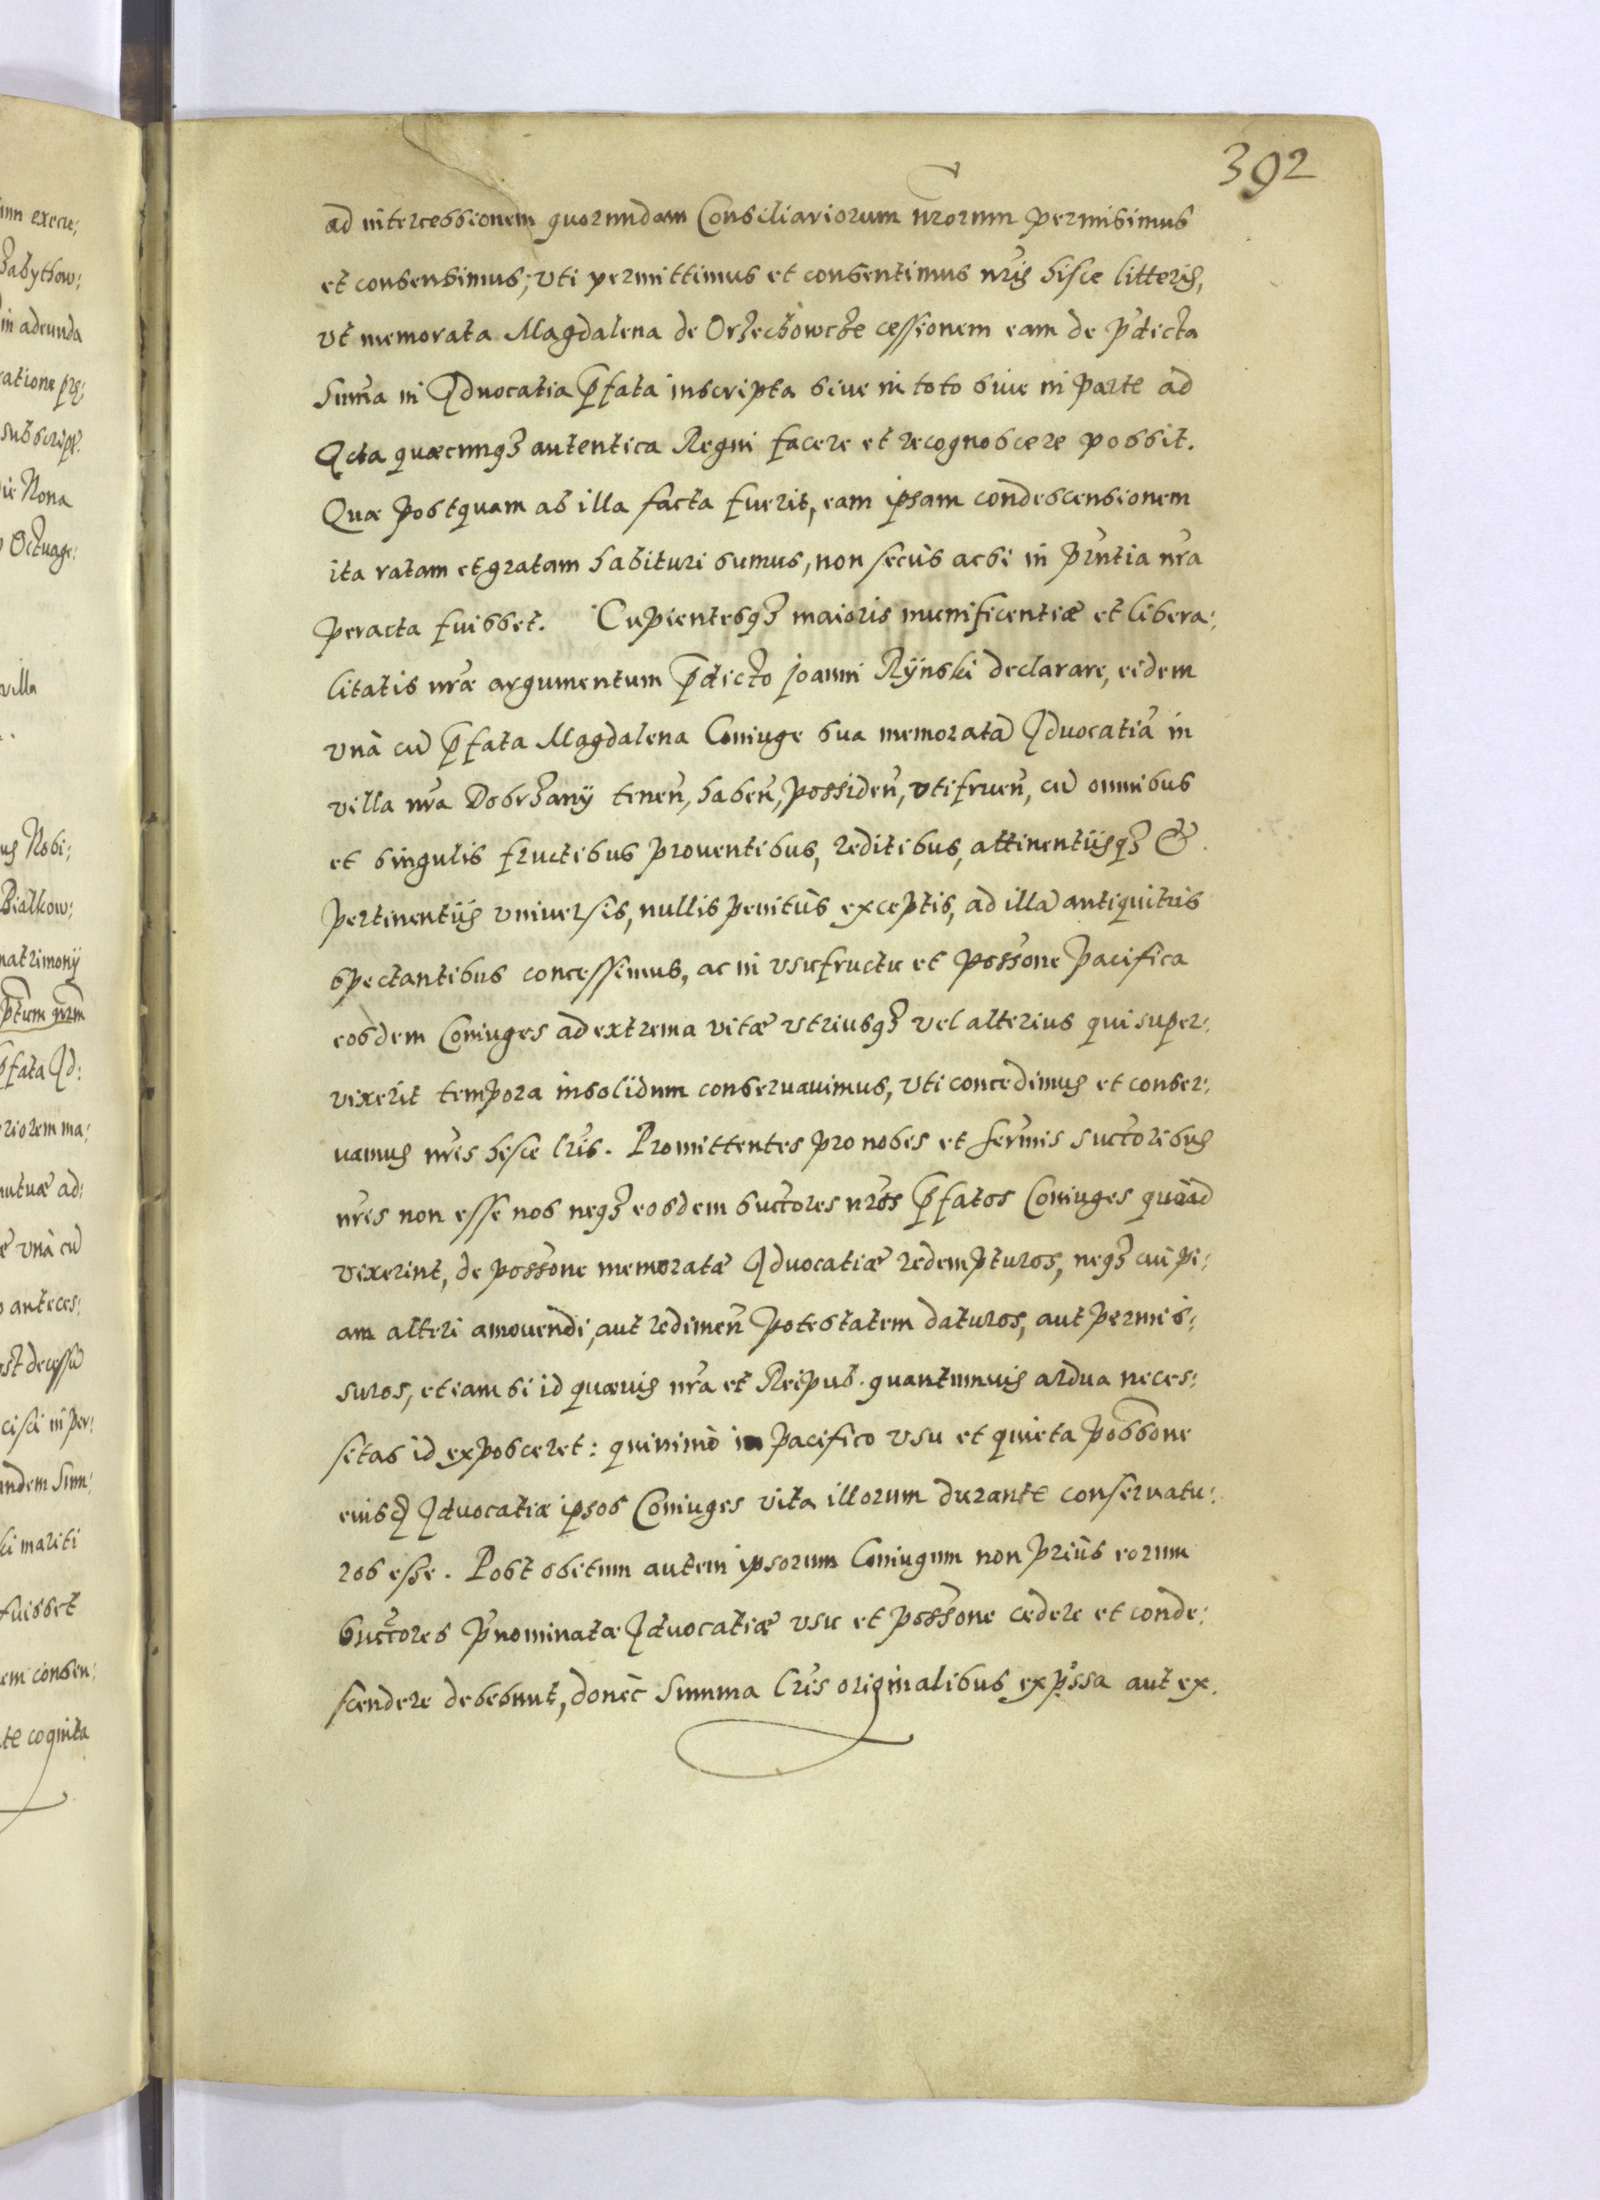 392
ad intercessionem quorundam Consiliariorum nr̃orum permisimus
et consensimus; Vti permittimus et consentimus nr̃is hisce litteris,
vt memorata Magdalena de Orzechowcze cessionem eam de p̃dicta
Sum̃a in Aduocatia p̃fata inscripta siue in toto siue in parte ad
Acta quæcunqꝫ autentica Regni facere et recognoscere possit.
Quæ postquam ab illa facta fuerit, eam ipsam condescensionem
ita ratam et gratam habituri sumus, non secùs ac si in p̃ntia nr̃a
peracta fuisset. Cupientesqꝫ maioris munificentiæ et libera:
litatis nr̃æ argumentum p̃dicto Joanni Rÿnski declarare, eidem
vnà cũ p̃fata Magdalena Coniuge sua memoratã Aduocatiã in
villa nr̃a Dobrzanÿ tenen̄, haben̄, possiden̄, vtifruen̄, cũ omnibus
et singulis fructibus prouentibus, reditibus, attinentiisqꝫ &
pertinentiis vniuersis, nullis penitùs exceptis, ad illã antiquitùs
spectantibus concessimus, ac in vsufructu et possoñe pacifica
eosdem Coniuges ad extrema vitæ vtriusqꝫ vel alterius qui super:
vixerit tempora insolidum conseruauimus, Vti concedimus et conser:
uamus nr̃is hisce lr̃is. Promittentes pro nobis et Ser̃mis Succ̃oribus
nr̃is non esse nos neqꝫ eosdem succ̃ores nr̃os p̃fatos Coniuges quòad
vixerint, de possoñe memoratæ Aduocatiæ redempturos, neqꝫ cuipi:
am alteri amouendi, aut redimen̄ potestatem daturos, aut permis:
suros, etiam si id quæuis nr̃a et Reipub. quantumuis ardua neces:
sitas id exposceret: quinimò in pacifico vsu et quieta possoñe
eiusd̃ Aduocatiæ ipsos Coniuges vita illorum durante conseruatu:
ros esse. Post obitum autem ipsorum Coniugum non priùs eorum
succ̃ores p̃nominatæ Aduocatiæ vsu et possoñe cedere et conde:
scendere debebunt, donèc Summa lr̃is originalibus exp̃ssa aut ex.